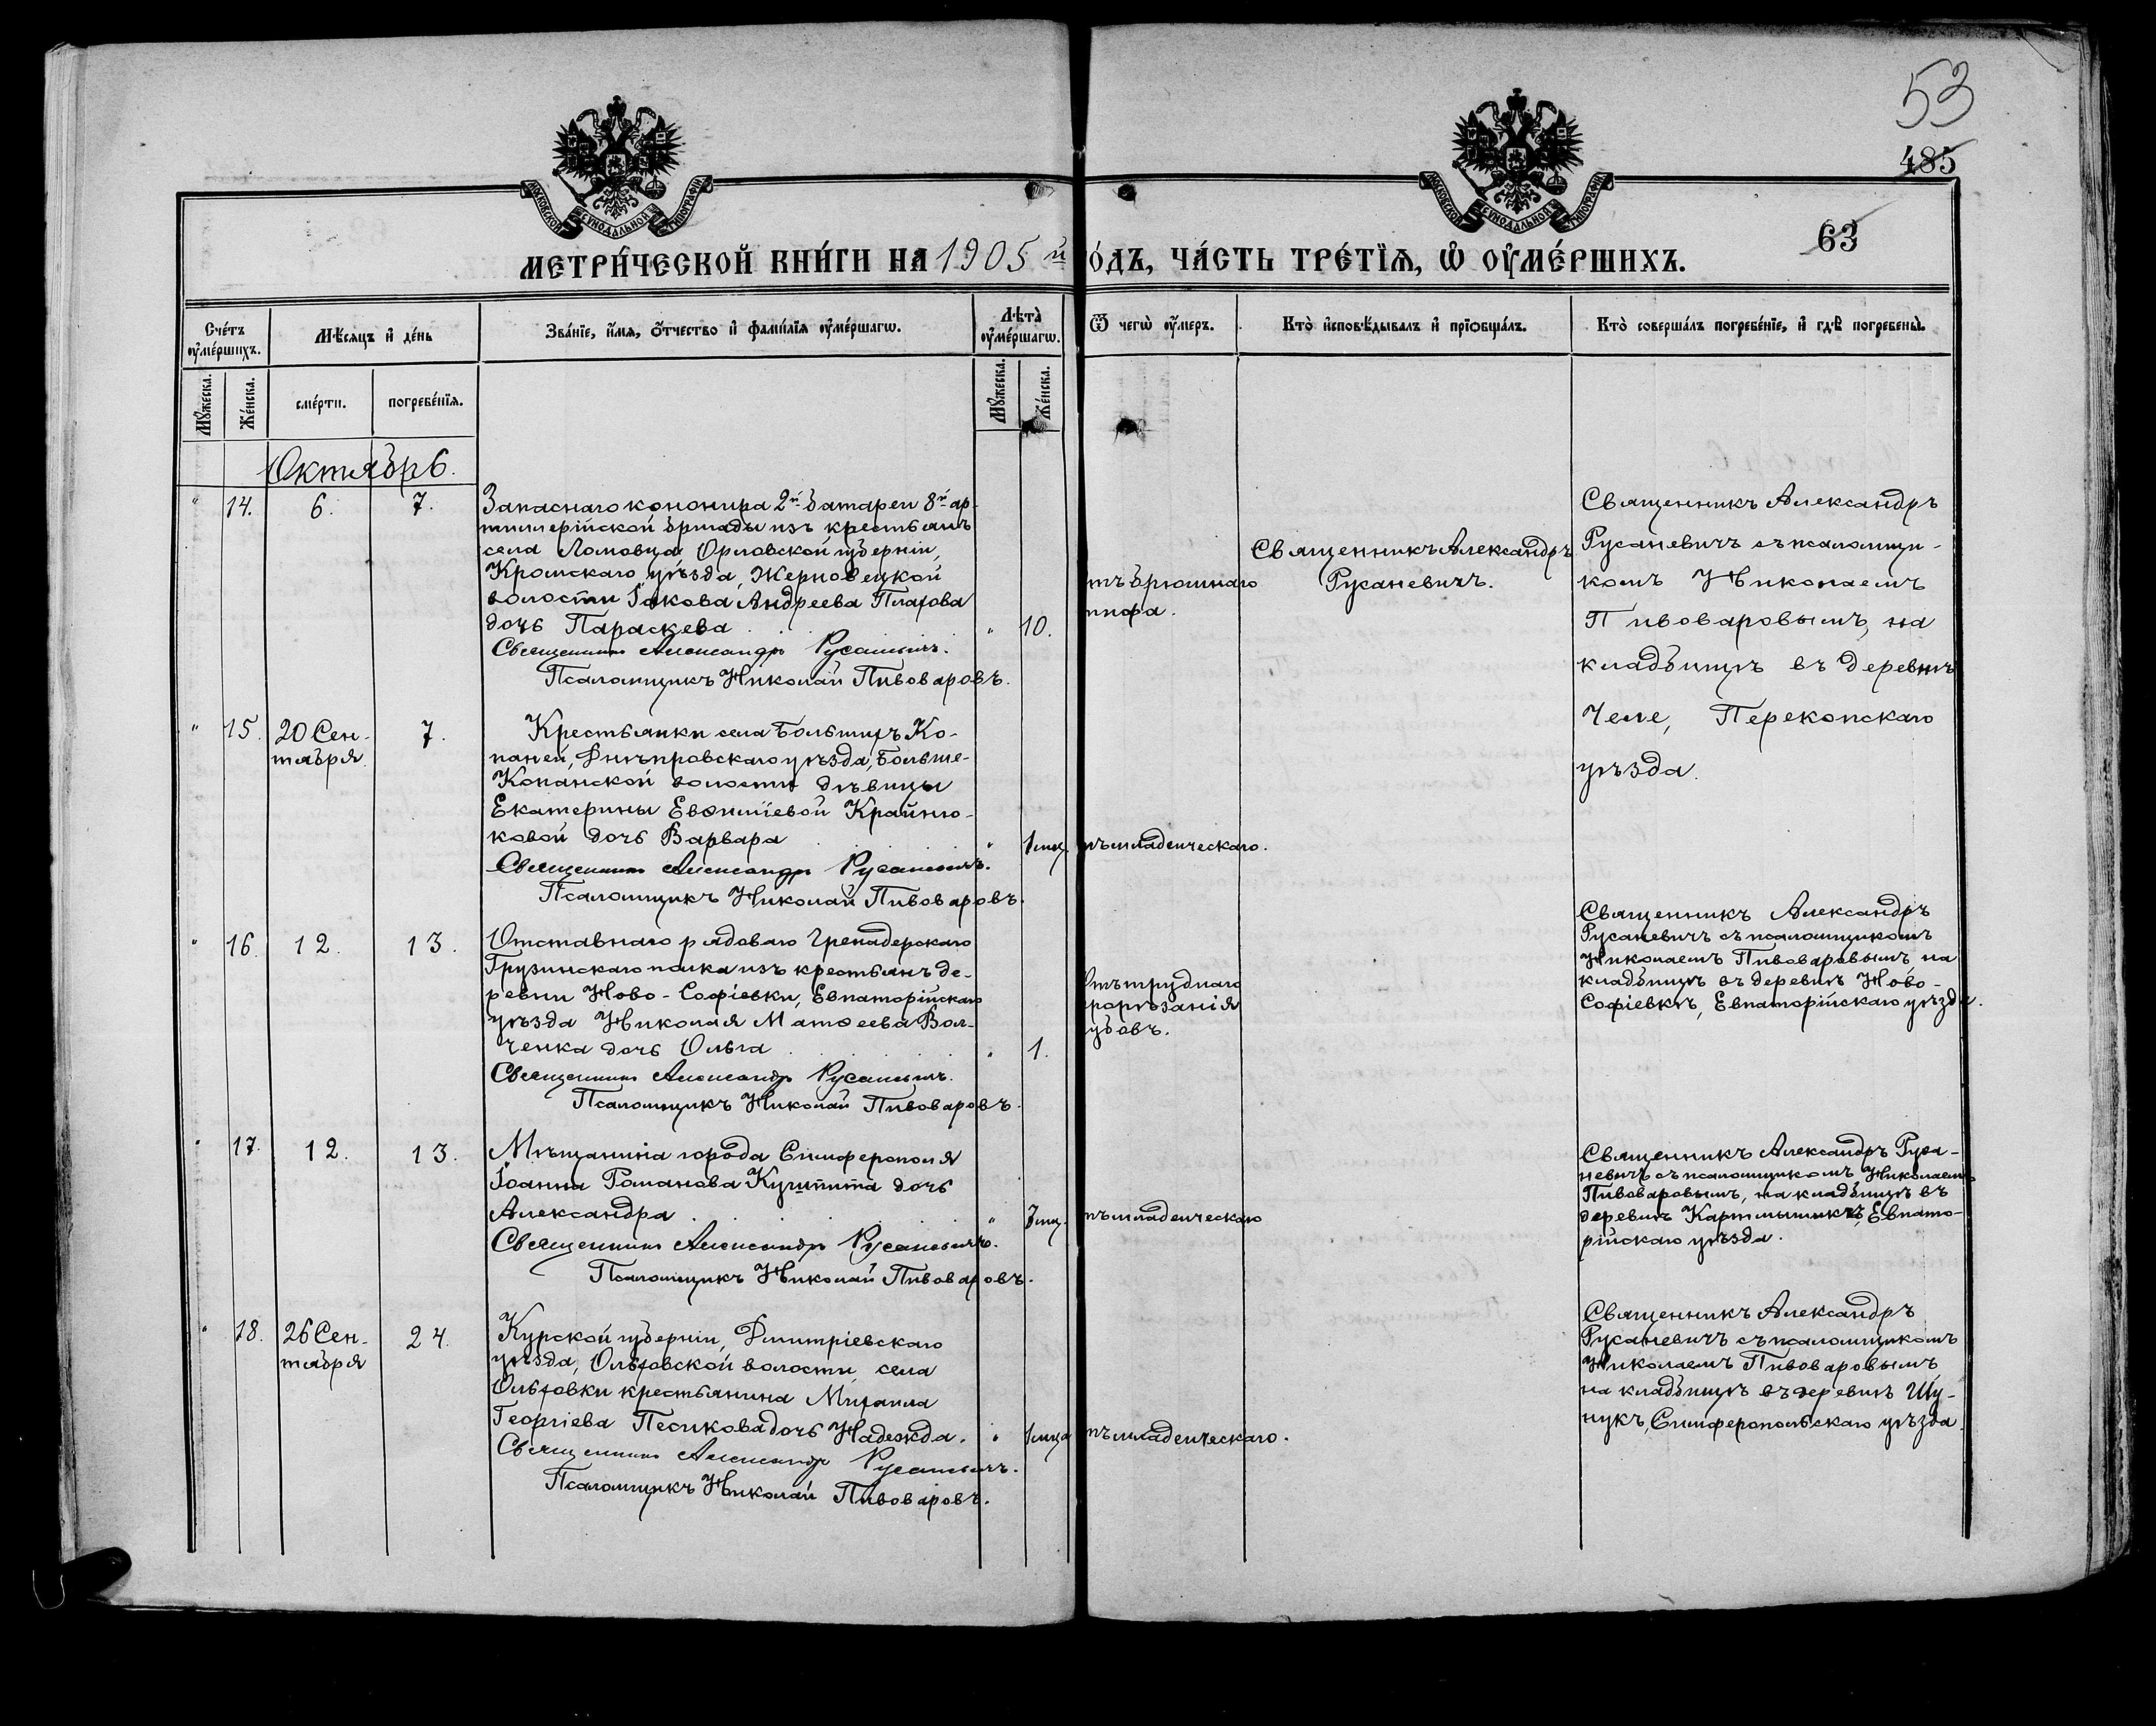 53
485
63
МОСКОВСКОЙ СѴНОДАЛЬНОЙ ТИПОГРАФІИ
МОСКОВСКОЙ СѴНОДАЛЬНОЙ ТИПОГРАФІИ
МЕТРИ́ЧЕСКОЙ КНИ́ГИ НА 1905й
О́ДЪ, ЧА́СТЬ ТРЕ́ТЇѦ, Ѡ ОУ҆МЕ́РШИХЪ.
Сче́тъ оу҆ме́ршихъ.
Мѣ́сѧцъ и҆ де́нь
Зва́нїе, и҆́мѧ, ѻ҆́тчество и҆ фамѝлїѧ оу҆ме́ршагѡ.
Лѣта̀ оу҆ме́ршагѡ.
Ѿ чегѡ̀ оу҆́меръ.
Кто̀ и҆сповѣ́дывалъ и҆ прїѡбща́лъ.
Кто̀ соверша́лъ погребе́нїе, и҆ гдѣ̀ погребены̀.
Мꙋ́жеска.
Же́нска.
сме́рти.
погребе́нїѧ.
Мꙋ́жеска.
Же́нска.
Октябрь.
" 14. 6. 7.
Запаснаго канонира 2й батареи 8й ар-
тиллерійской бригады изъ крестьянъ
села Ломовца Орловской губерніи,
Кромскаго уѣзда, Жерновецкой
волости Іакова Андреева Платова
дочь Параскева " 10.
Священникъ Александръ Русаневичъ.
Псаломщикъ Николай Пивоваровъ.
тъ брюшнаго
тифа.
Священникъ Александръ
Русаневичъ.
Священникъ Александръ
Русаневичъ съ псаломщи-
комъ Николаемъ
Пивоваровымъ, на
кладбищѣ въ деревнѣ
Челе, Перекопскаго
уѣзда.
" 15. 20 Сен-
тября. 7.
Крестьянки села Большихъ Ко-
паней, Днѣпровскаго уѣзда, Больше-
Копанской волости дѣвицы
Екатерины Евѳиміевой Крайню-
ковой дочь Варвара " 1 мѣс.
Священникъ Александръ Русаневичъ.
Псаломщикъ Николай Пивоваровъ.
тъ младенческаго.
" 16. 12. 13.
Отставнаго рядоваго Гренадерскаго
Грузинскаго полка изъ крестьянъ де-
ревни Ново-Софіевки, Евпаторійскаго
уѣзда Николая Матѳеева Вол-
ченка дочь Ольга " 1.
Священникъ Александръ Русаневичъ.
Псаломщикъ Николай Пивоваровъ.
Отъ труднаго
прорѣзанія
зубовъ.
Священникъ Александръ
Русаневичъ съ псаломщикомъ
Николаемъ Пивоваровымъ на
кладбищѣ въ деревнѣ Ново-
Софіевкѣ, Евпаторійскаго уѣзда.
" 17. 12. 13.
Мѣщанина города Симферополя
Іоанна Романова дочь
Александра " 7 мѣс.
Священникъ Александръ Русаневичъ.
Псаломщикъ Николай Пивоваровъ.
тъ младенческаго
Священникъ Александръ Руса-
невичъ съ псаломщикомъ Николаемъ
Пивоваровымъ, на кладбищѣ въ
деревнѣ Картмышикъ, Евпато-
рійскаго уѣзда.
" 18. 26 Сен-
тября 24.
Курской губерніи, Дмитріевскаго
уѣзда, Ольховской волости, села
Ольховки крестьянина Михаила
Георгіева Песикова дочь Надежда. " 1 мѣсяц
Священникъ Александръ Русаневичъ.
Псаломщикъ Николай Пивоваровъ.
тъ младенческаго.
Священникъ Александръ
Русаневичъ съ псаломщикомъ
Николаемъ Пивоваровымъ
на кладбищѣ въ деревнѣ Шу-
нукъ, Симферопольскаго уѣзда.